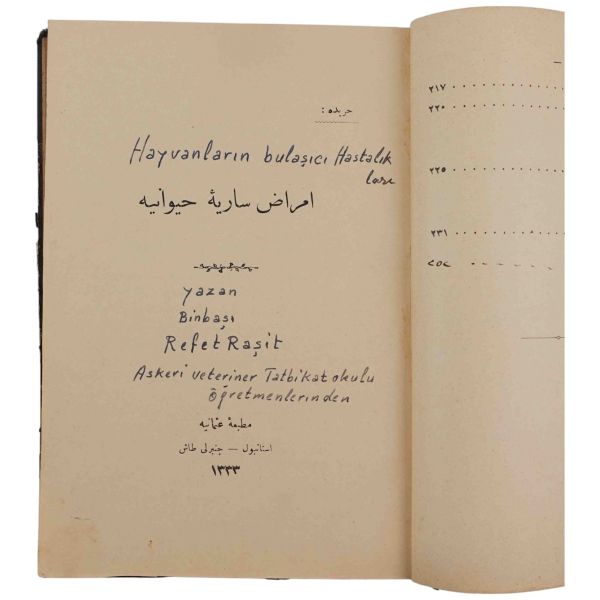 حربده :
Hayvanların bulaşıcı Hastalık
ları
امراض ساریهٔ حیوانیه
yazan
Binbaşı
Refet Raşit
Askeri veteriner Tatbikat okulu
öğretmenlerinden
مطبعهٔ عثمانیه
استانبول — چنبرلی طاش
١٣٣٣
٢١٧
٢٢٠
٢٢٥
٢٣١
٢٥٢